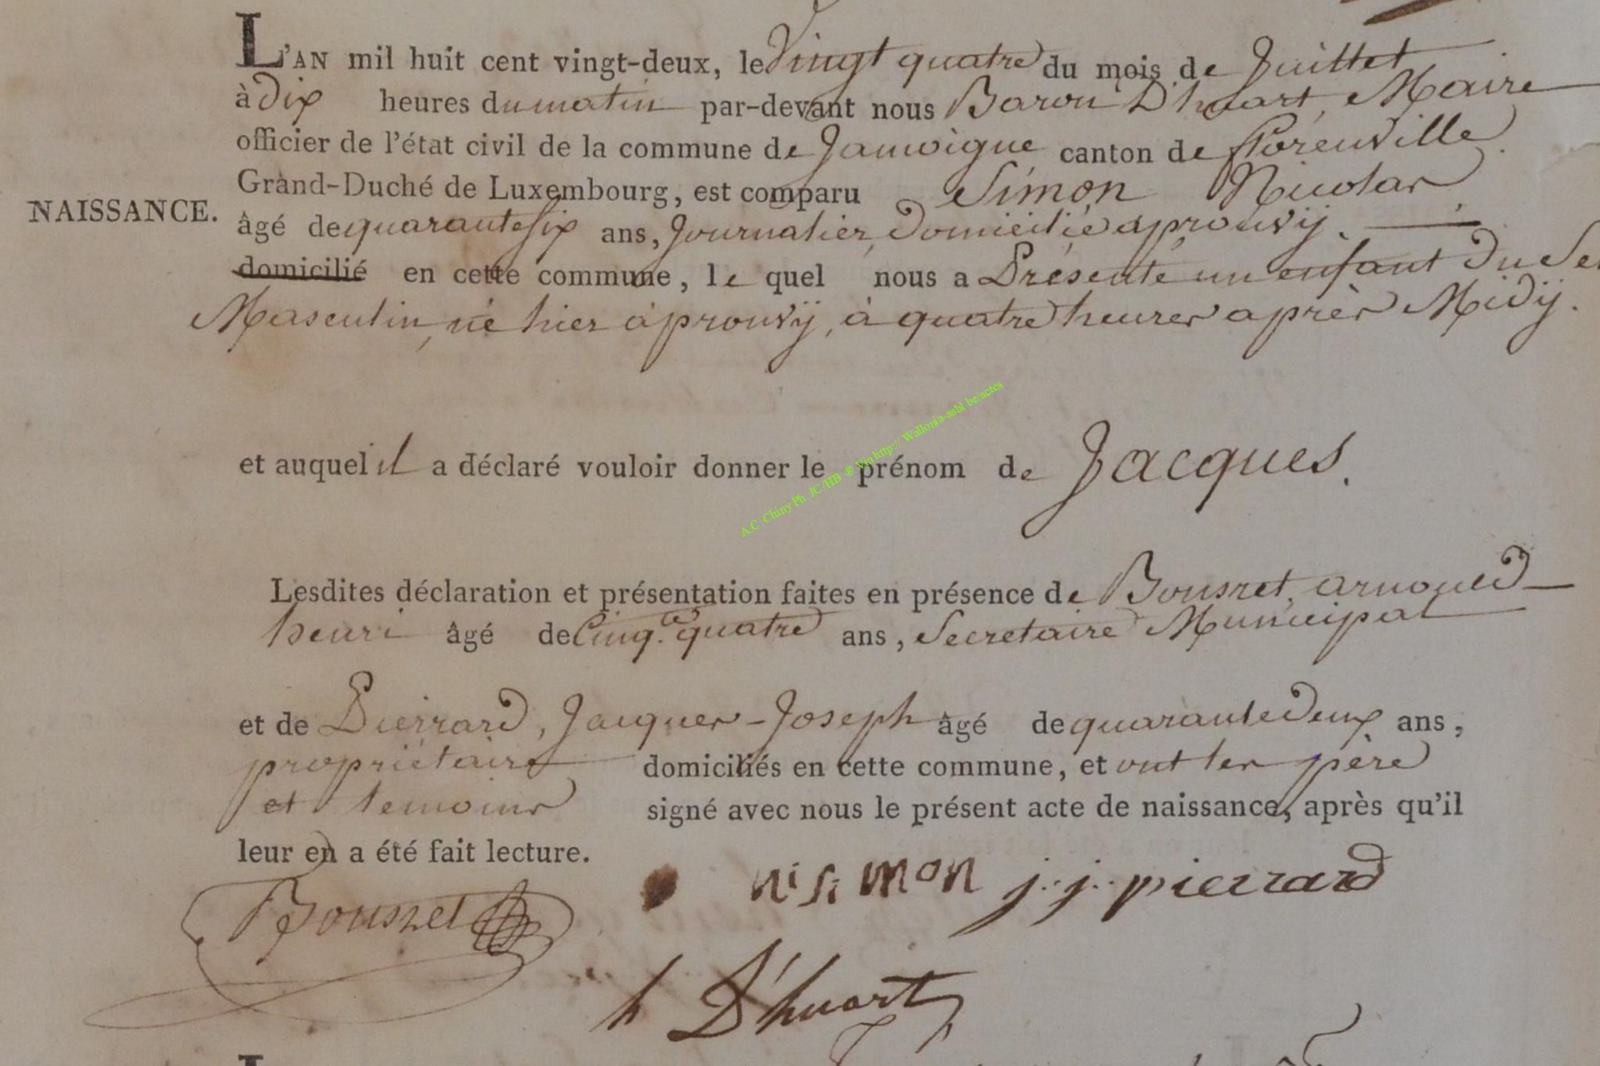 L'AN mil huit cent vingt-deux, le Vingt quatre du mois de Juillet
à dix heures du matin par-devant nous Baron D'huart, Maire
officier de l'état civil de la commune de Jamoigne canton de florenville
Grand-Duché de Luxembourg, est comparu Simon Nicolas
NAISSANCE.
âgé de quarante six ans, Journalier, domicilié a prouvij.
domicilié en cette commune, le quel nous a Présenté un enfant du Se
Masculin, né hier à prouvij, à quatre heures après Midij.
et auquel il a déclaré vouloir donner le prénom de Jacques.
A.C. Chiny Ph JC/HB
Lesdites déclaration et présentation faites en présence de Bousret, arnould
henri âgé de Cinq.te quatre ans, Secretaire Municipal
et de Pierrard, Jacques-Joseph âgé de quarante deux ans,
propriétaire domiciliés en cette commune, et ont les père
et temoins signé avec nous le présent acte de naissance, après qu'il
leur en a été fait lecture.
ni simon j. j. pierrard
Bousret
h D'huart